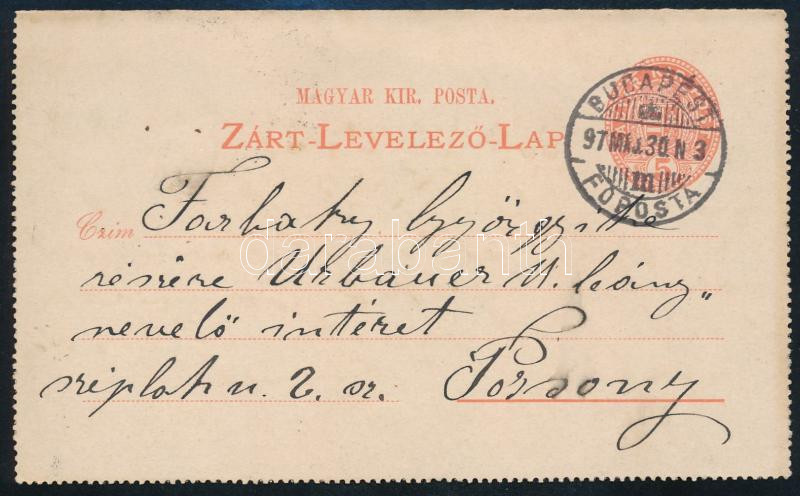 MAGYAR KIR. POSTA.
ZÁRT-LEVELEZŐ-LAP
5
BUDAPEST
97 MÁJ. 30 N 3
FŐPOSTA
Czim Farbaky Györgyike
részére Urbauer M. leány„
nevelő intézet
széplak u. 2. sz. Pozsony
darabanth